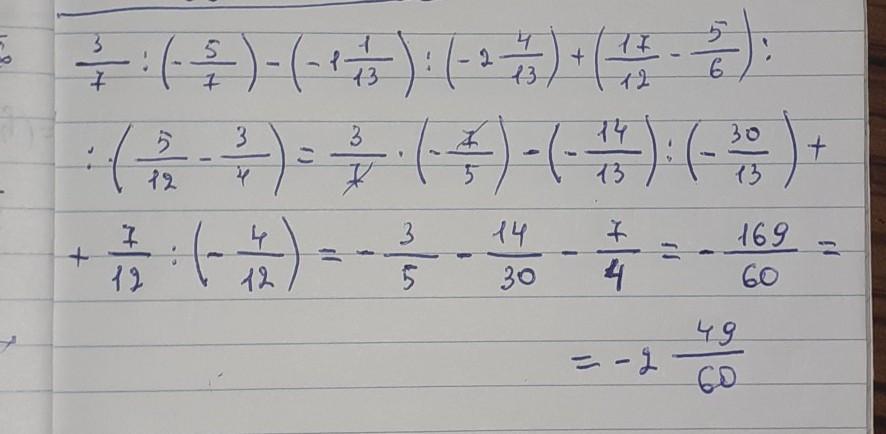 3/7 : (- 5/7) - (-1 1/13) : (-2 4/13) + (17/12 - 5/6) :
: (5/12 - 3/4) = 3/7 · (- 7/5) - (- 14/13) : (- 30/13) +
+ 7/12 : (- 4/12) = - 3/5 - 14/30 - 7/4 = - 169/60 =
= -2 49/60